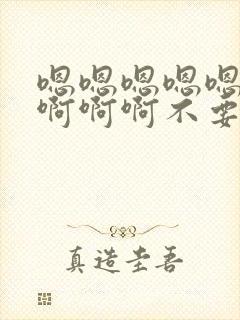 嗯嗯嗯嗯嗯
啊啊啊不要
真造圭吾